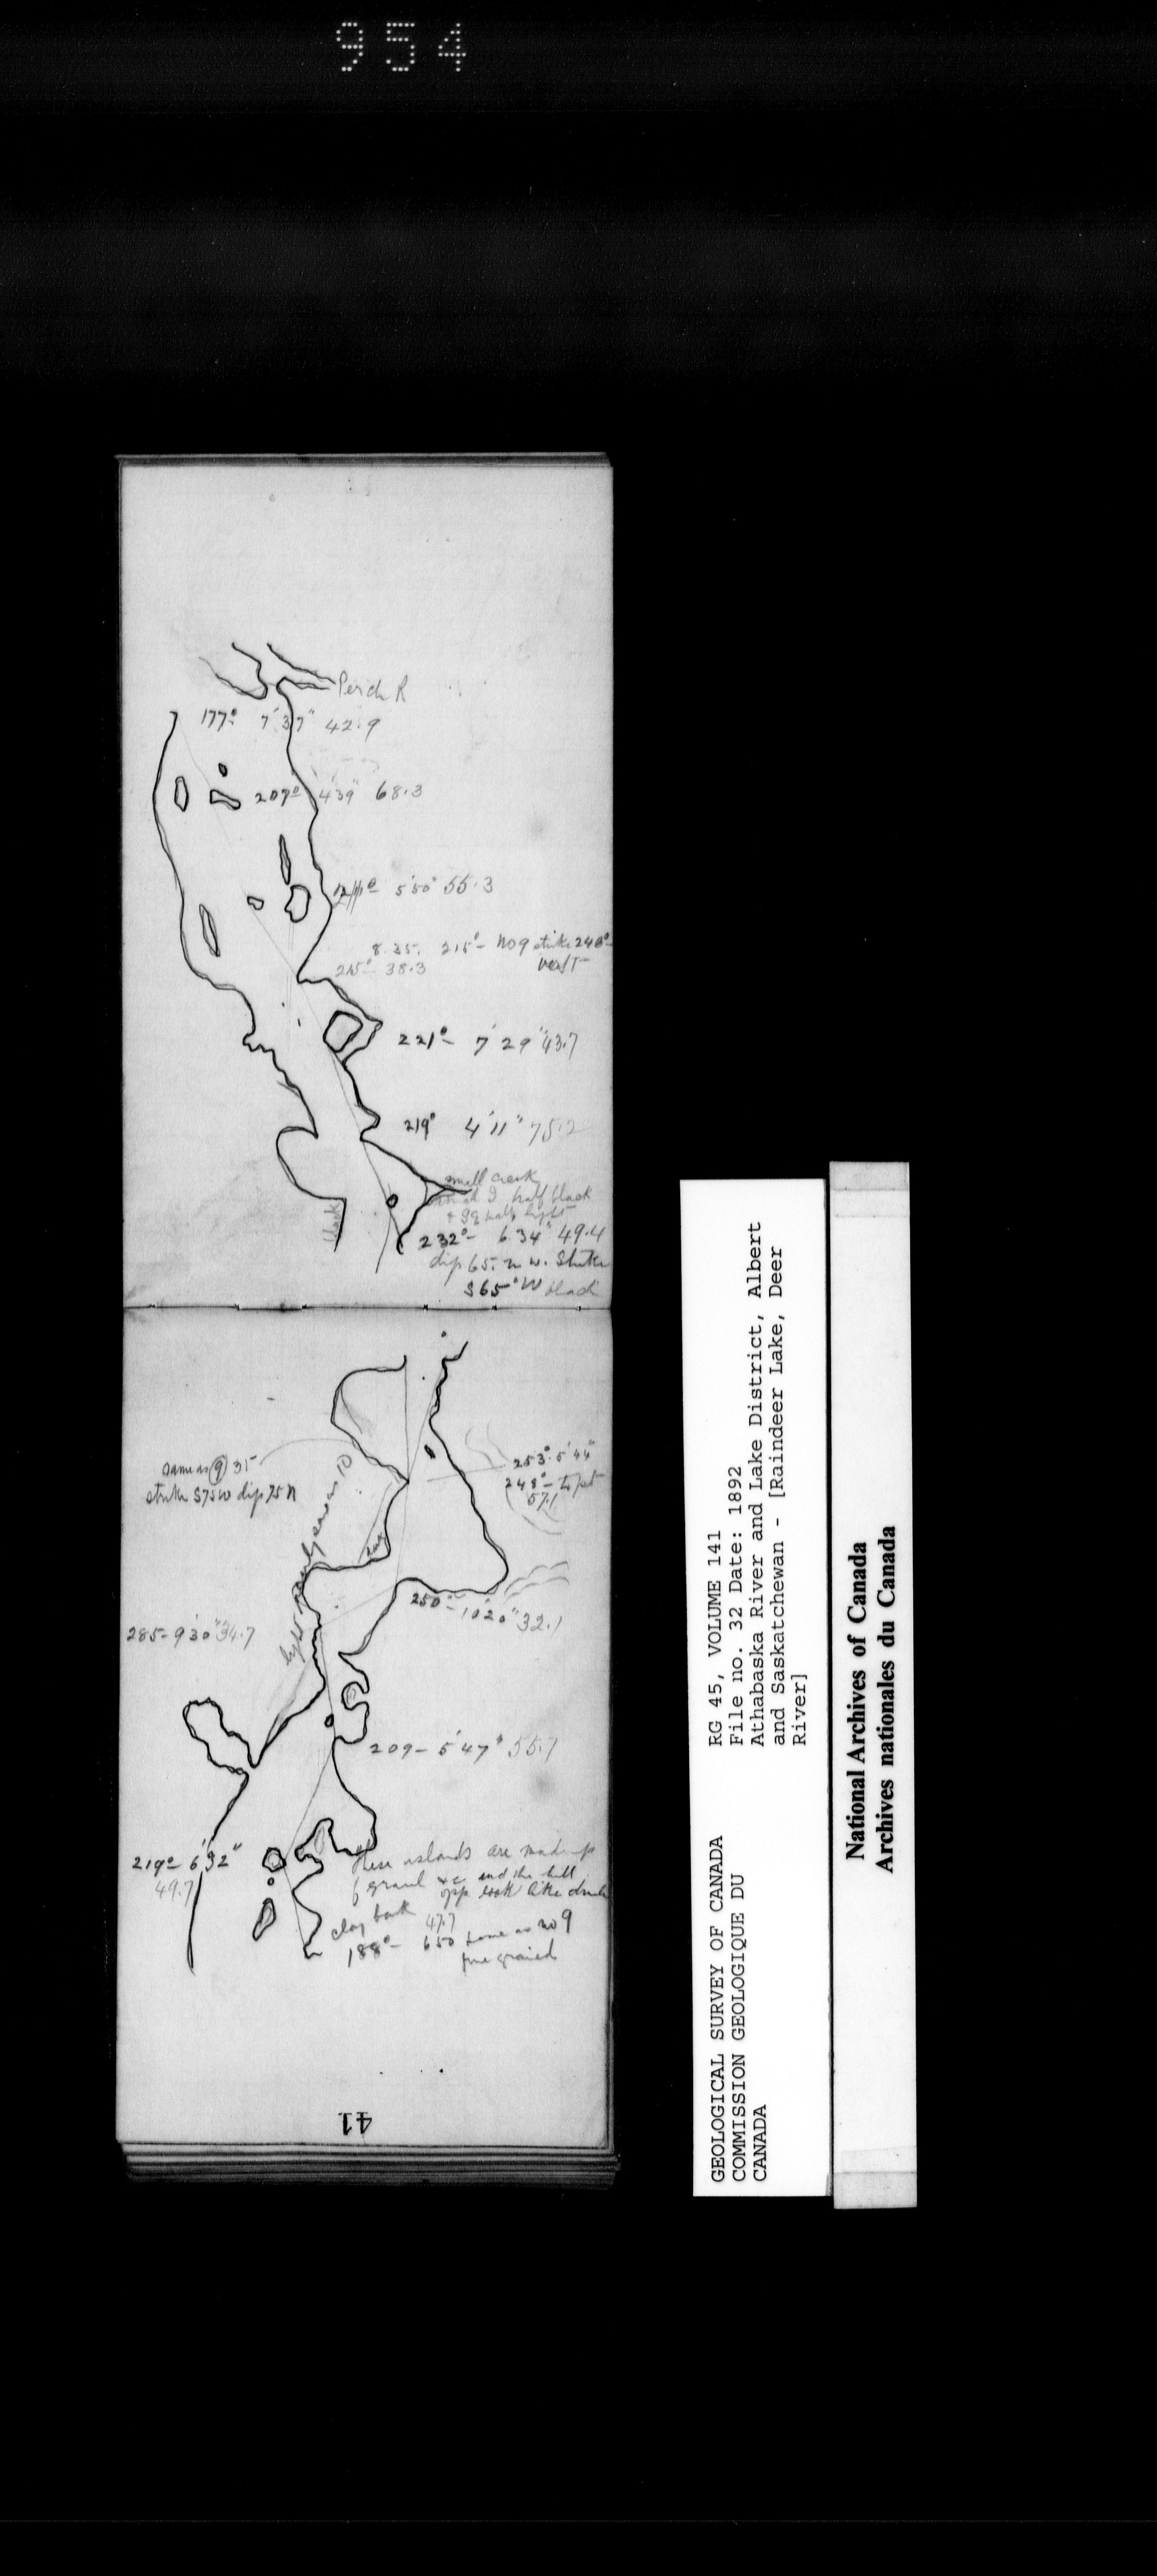 954
Perch R
177° 7'37" 42.9
207° 4'39" 68.3
5'50" 55.3
8.35. 215°- No 9 strike 240°-
vert
215°- 38.3
221°- 7'29" 43.7
219° 4'11" 75.2
small creek
half black
& half light
232°- 6'34" 49.4
dip 65. n w. Strike
S65°W black
black
same as 9 35
strike S75W dip 75 N
253° 5'44"
248°- to pt
57.1
light
same as 10
250°- 10'20" 32.1
285- 9'30" 34.7
209- 5'47" 55.7
219°- 6'32"
49.7
these islands are made up
of gravel &c and the hill
opp. look like
clay bank
47.7
188°- 6 50 same as no 9
fine grained
41
GEOLOGICAL SURVEY OF CANADA
COMMISSION GEOLOGIQUE DU
CANADA
RG 45, VOLUME 141
File no. 32 Date: 1892
Athabaska River and Lake District, Albert
and Saskatchewan - [Raindeer Lake, Deer
River]
National Archives of Canada
Archives nationales du Canada